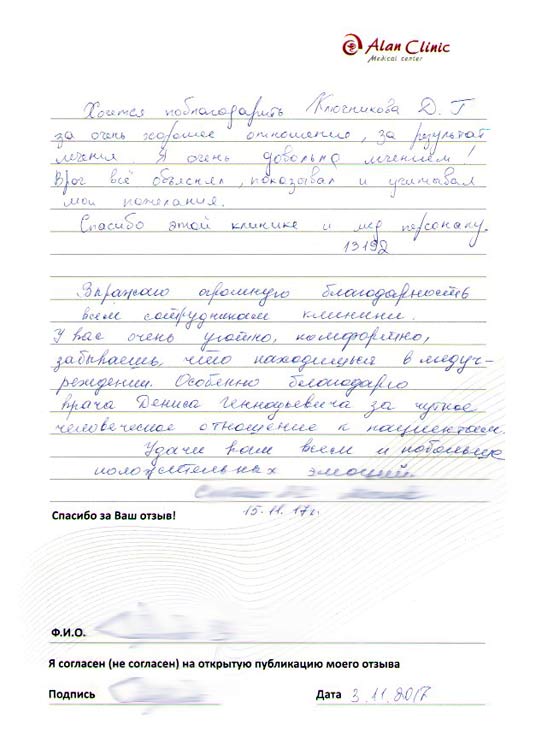 Alan Clinic
Medical center
Хочется поблагодарить Ключникова Д. Г
за очень хорошее отношение, за результат
лечения. Я очень довольна лечением!
Врач всё объяснял, показывал и учитывал
мои пожелания.
Спасибо этой клинике и мед персоналу.
13192
Выражаю огромную благодарность
всем сотрудникам клиники.
У вас очень уютно, комфортно,
забываешь, что находишься в медуч-
реждении. Особенно благодарю
врача Дениса Геннадьевича за чуткое
человеческое отношение к пациентам.
Удачи вам всем и побольше
положительных эмоций.
15.11.17г.
Спасибо за Ваш отзыв!
Ф.И.О.
Я согласен (не согласен) на открытую публикацию моего отзыва
Подпись Дата 3.11.2017